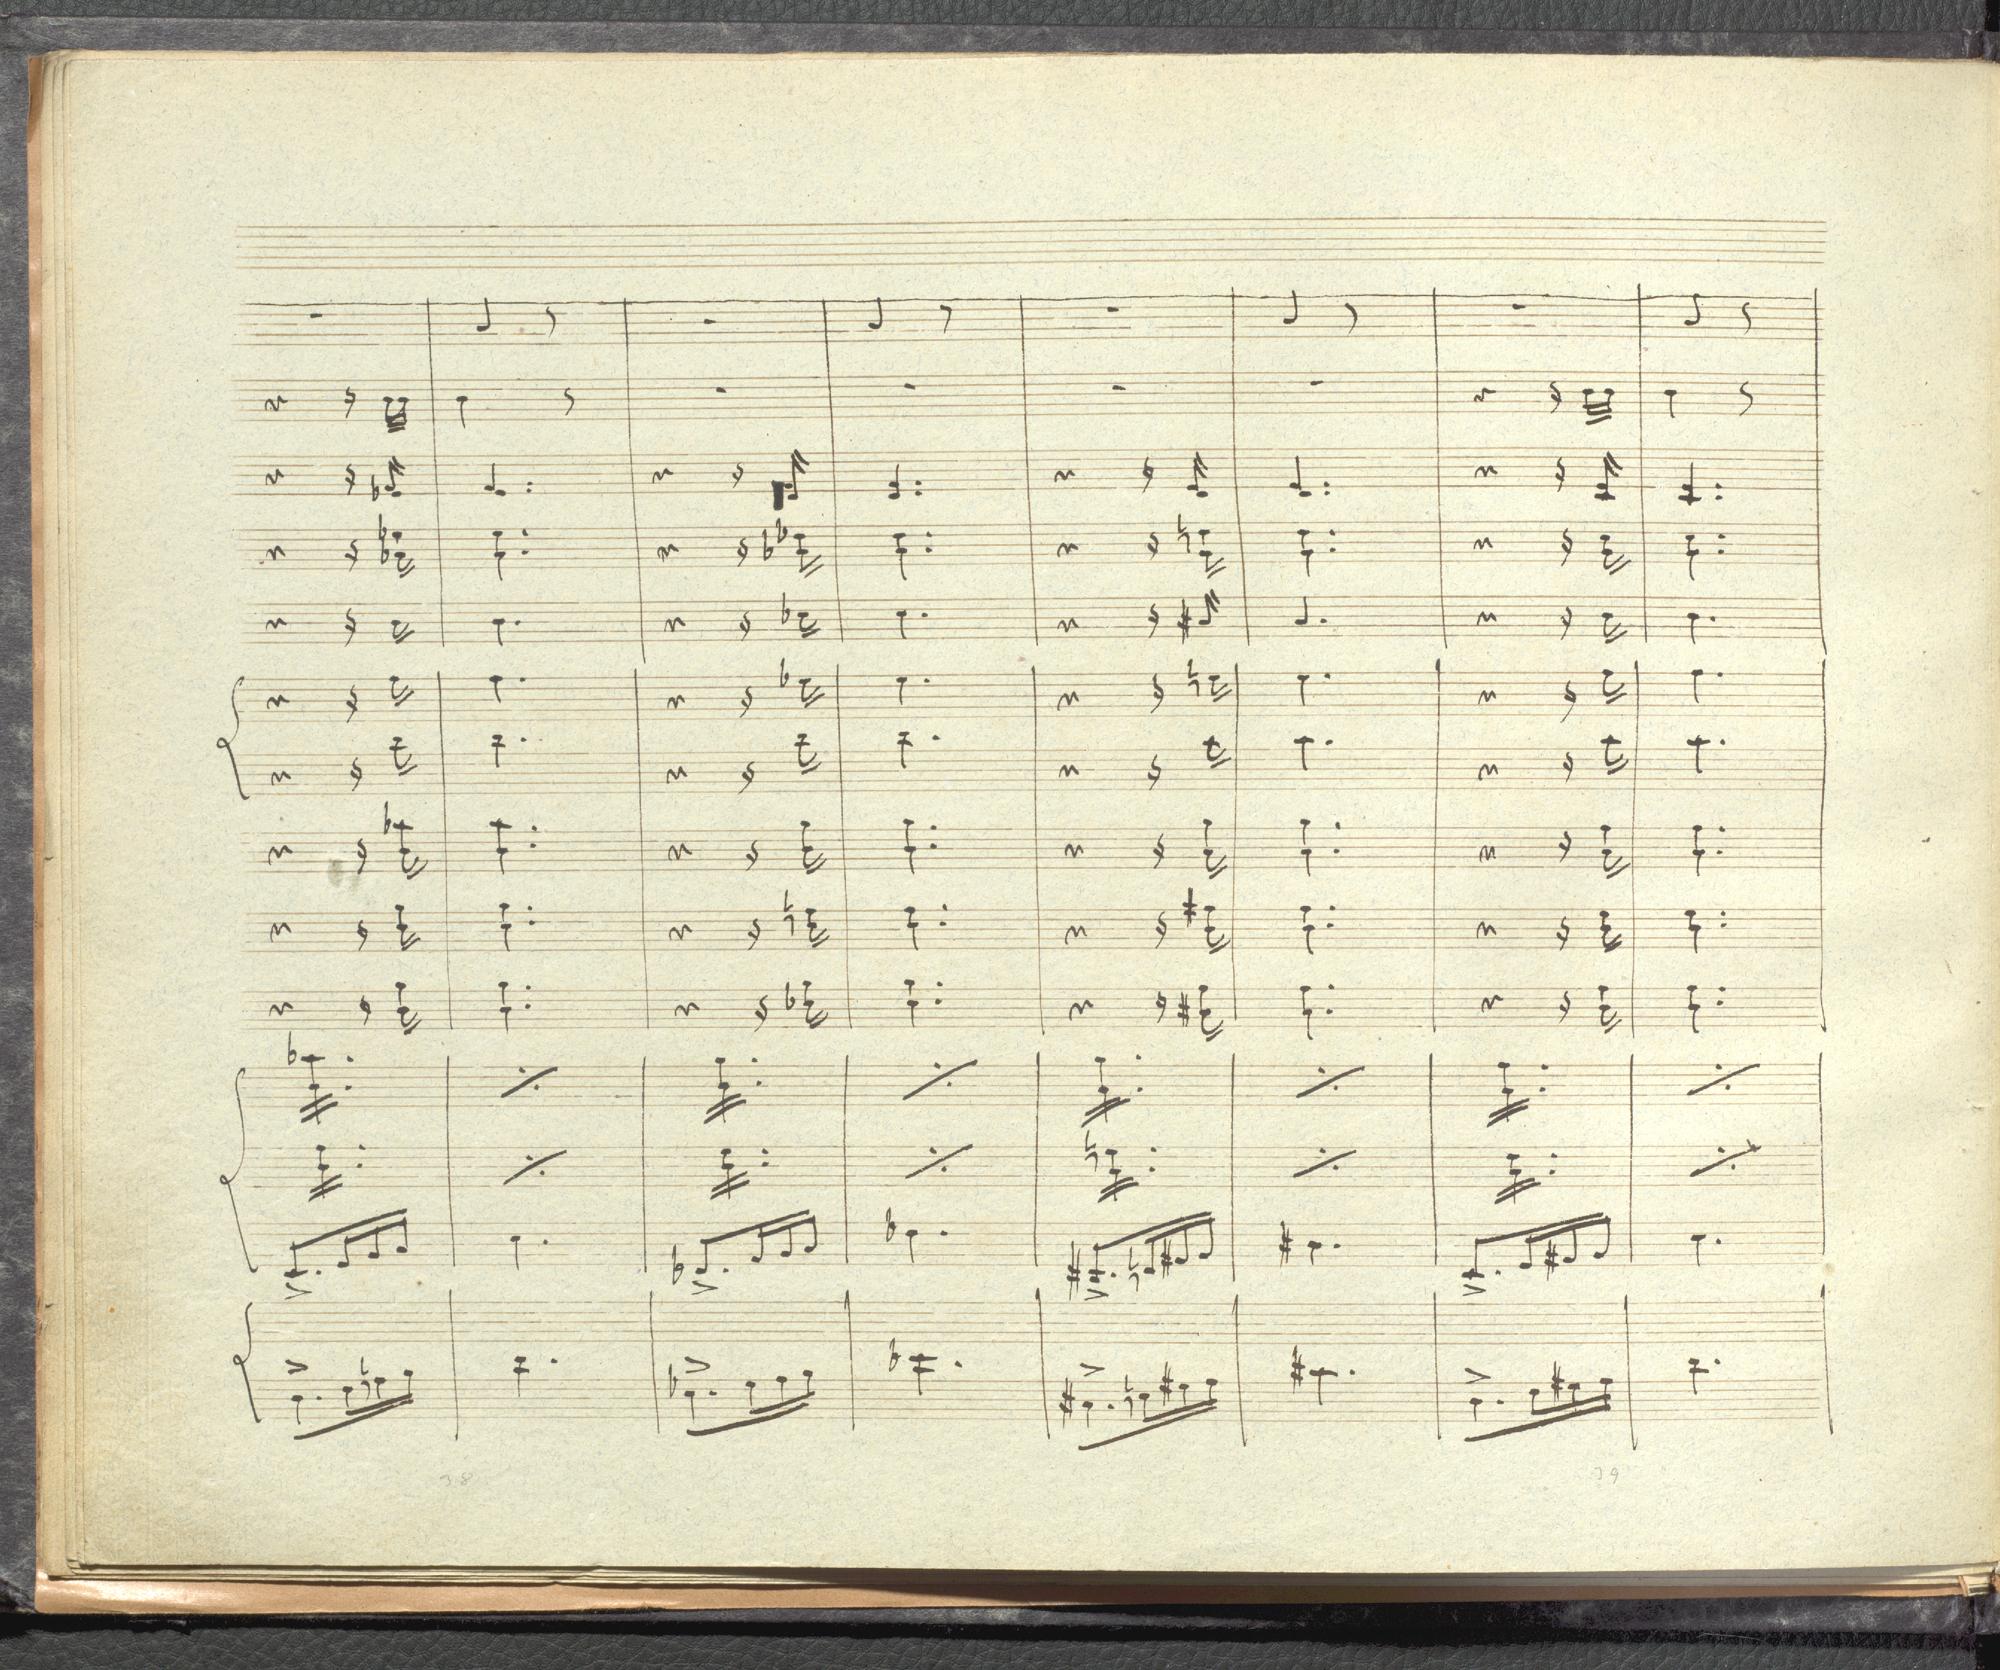 38 39